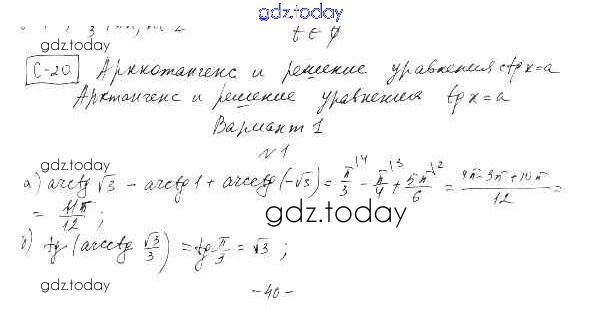 gdz.today
t ∈ ∅
gdz.today
С-20 Арккотангенс и решение уравнения ctg x = a
Арктангенс и решение уравнения tg x = a
Вариант 1
№1
gdz.today
а) arctg √3 − arctg 1 + arcctg (−√3) = π/3 − π/4 + 5π/6 = (4π − 3π + 10π)/12 =
= 11π/12 ;
gdz.today
б) tg (arcctg √3/3) = tg π/3 = √3 ;
gdz.today
- 40 -